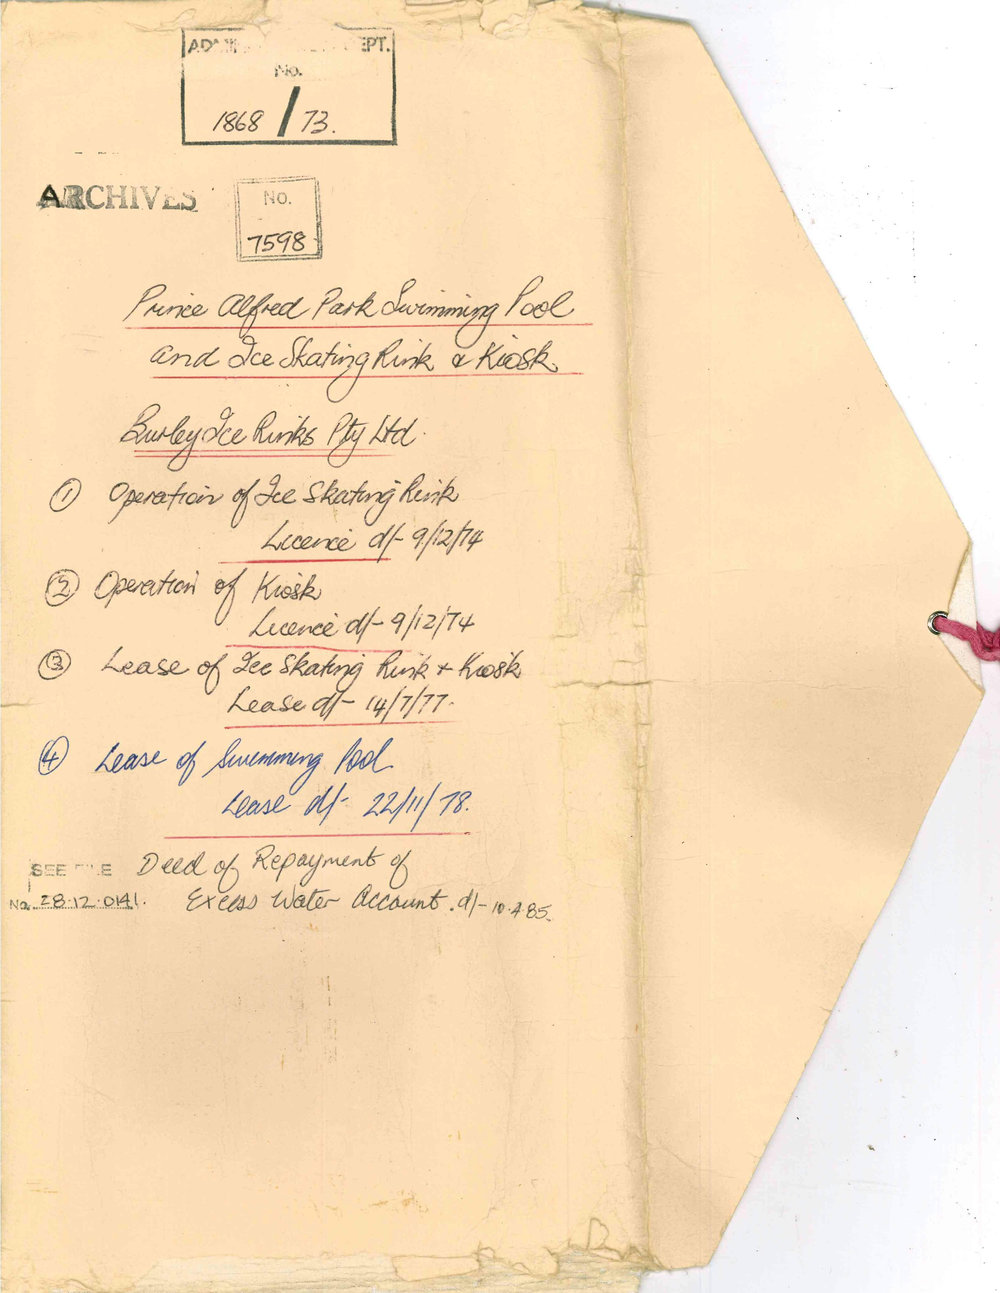 DEPT.
No.
1868 / 73.
ARCHIVES
No.
7598
Prince Alfred Park Swimming Pool
and Ice Skating Rink & Kiosk
Burley Ice Rinks Pty Ltd.
① Operation of Ice Skating Rink
Licence d/- 9/12/74
② Operation of Kiosk
Licence d/- 9/12/74
③ Lease of Ice Skating Rink + Kiosk
Lease d/- 14/7/77.
④ Lease of Swimming Pool
Lease d/- 22/11/78.
SEE FILE Deed of Repayment of
No. 28.12.0141. Excess Water Account. d/- 10.4.85.